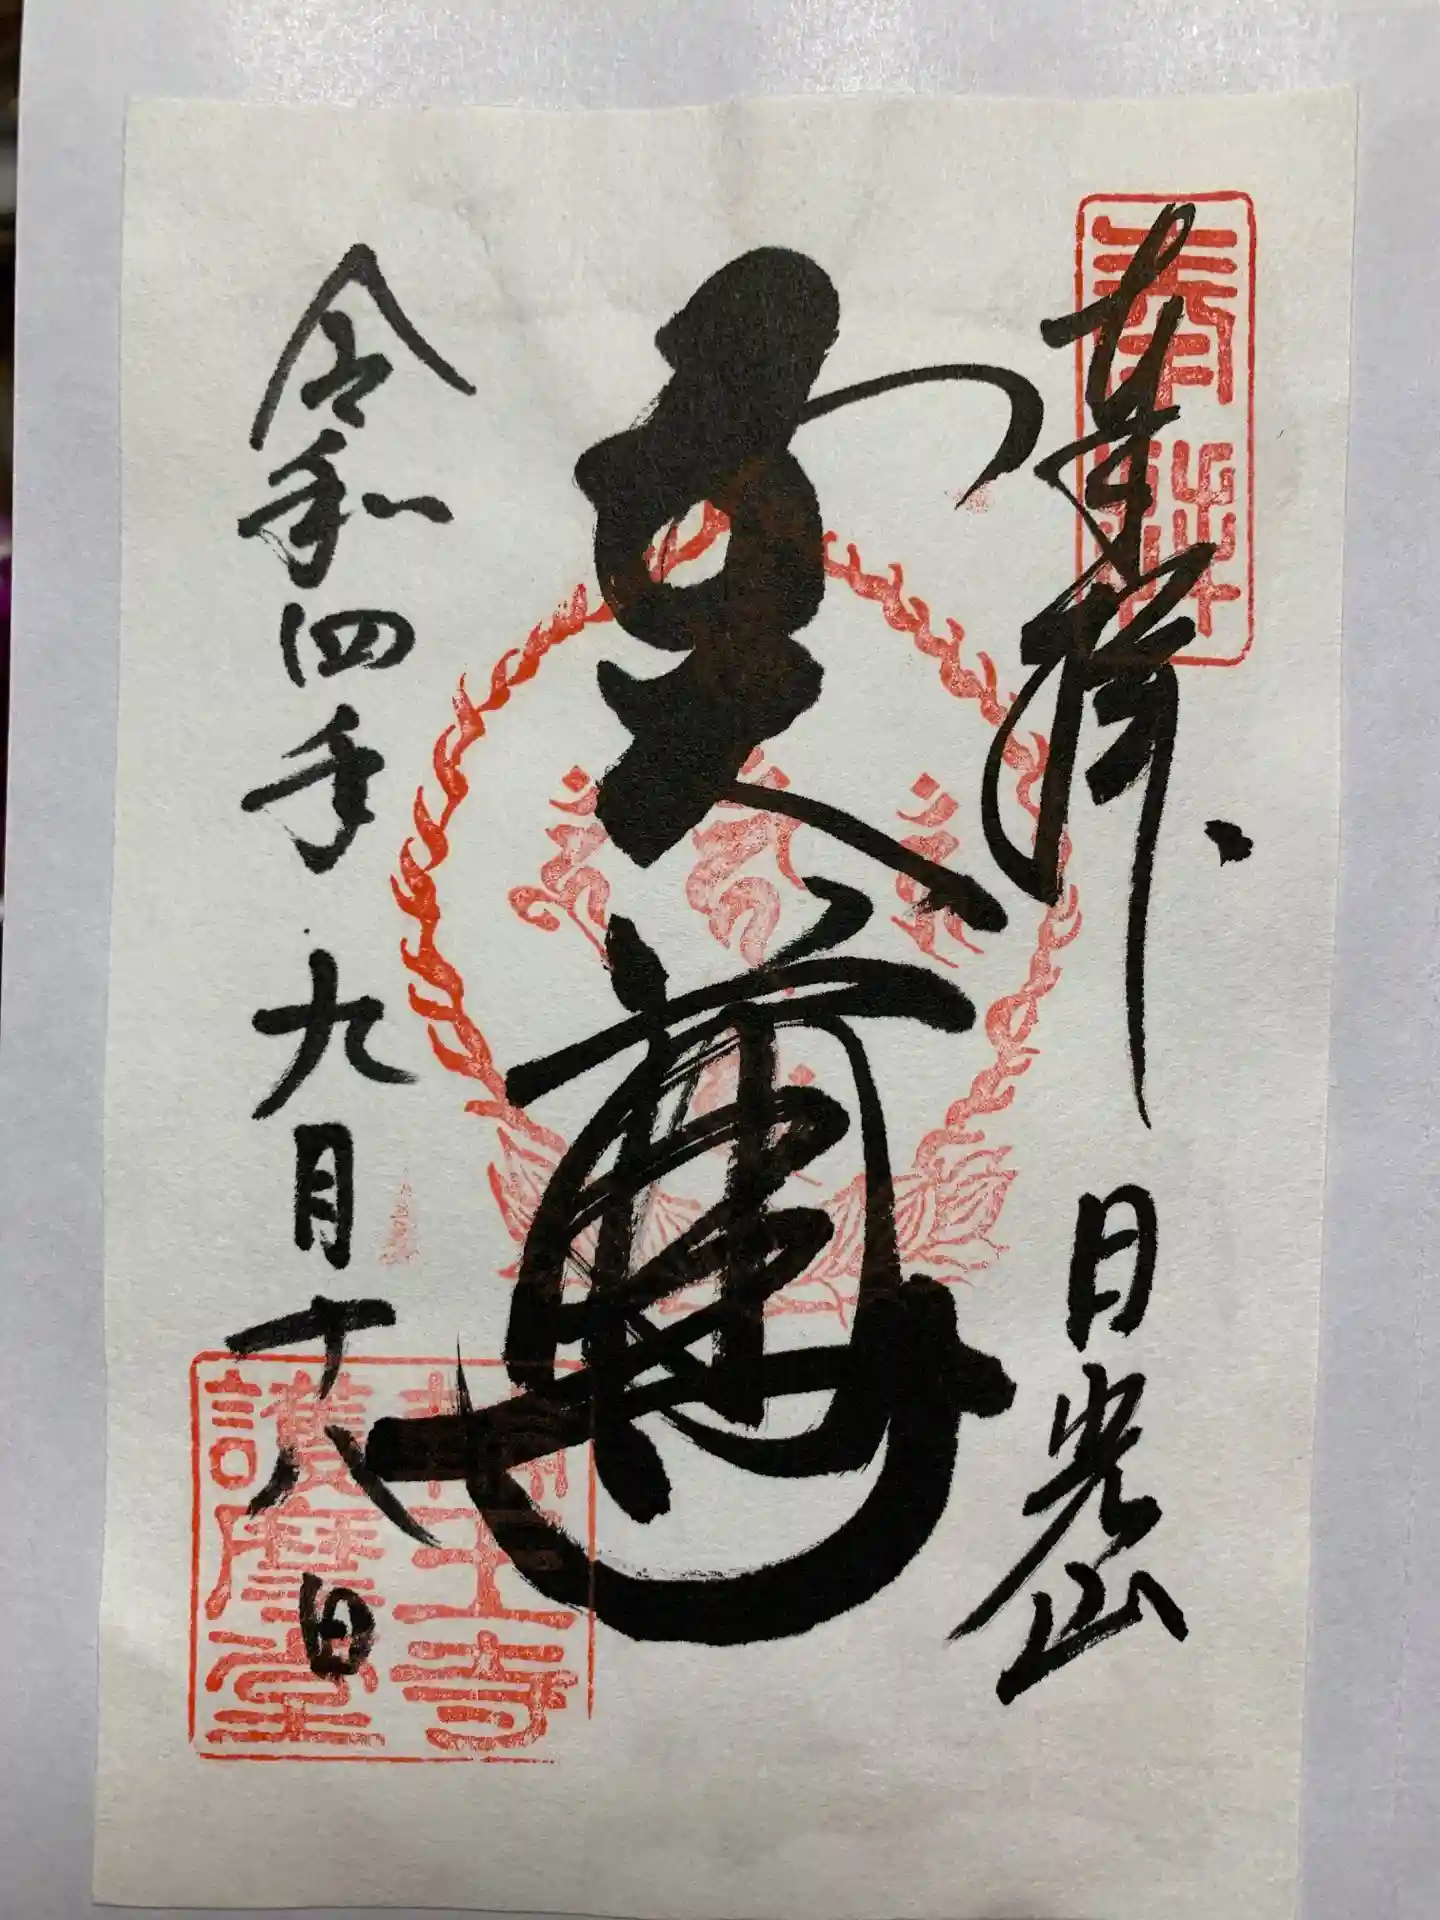 奉拝
奉拝
日光山
五大尊
令和四年九月十八日
輪王寺
護摩堂